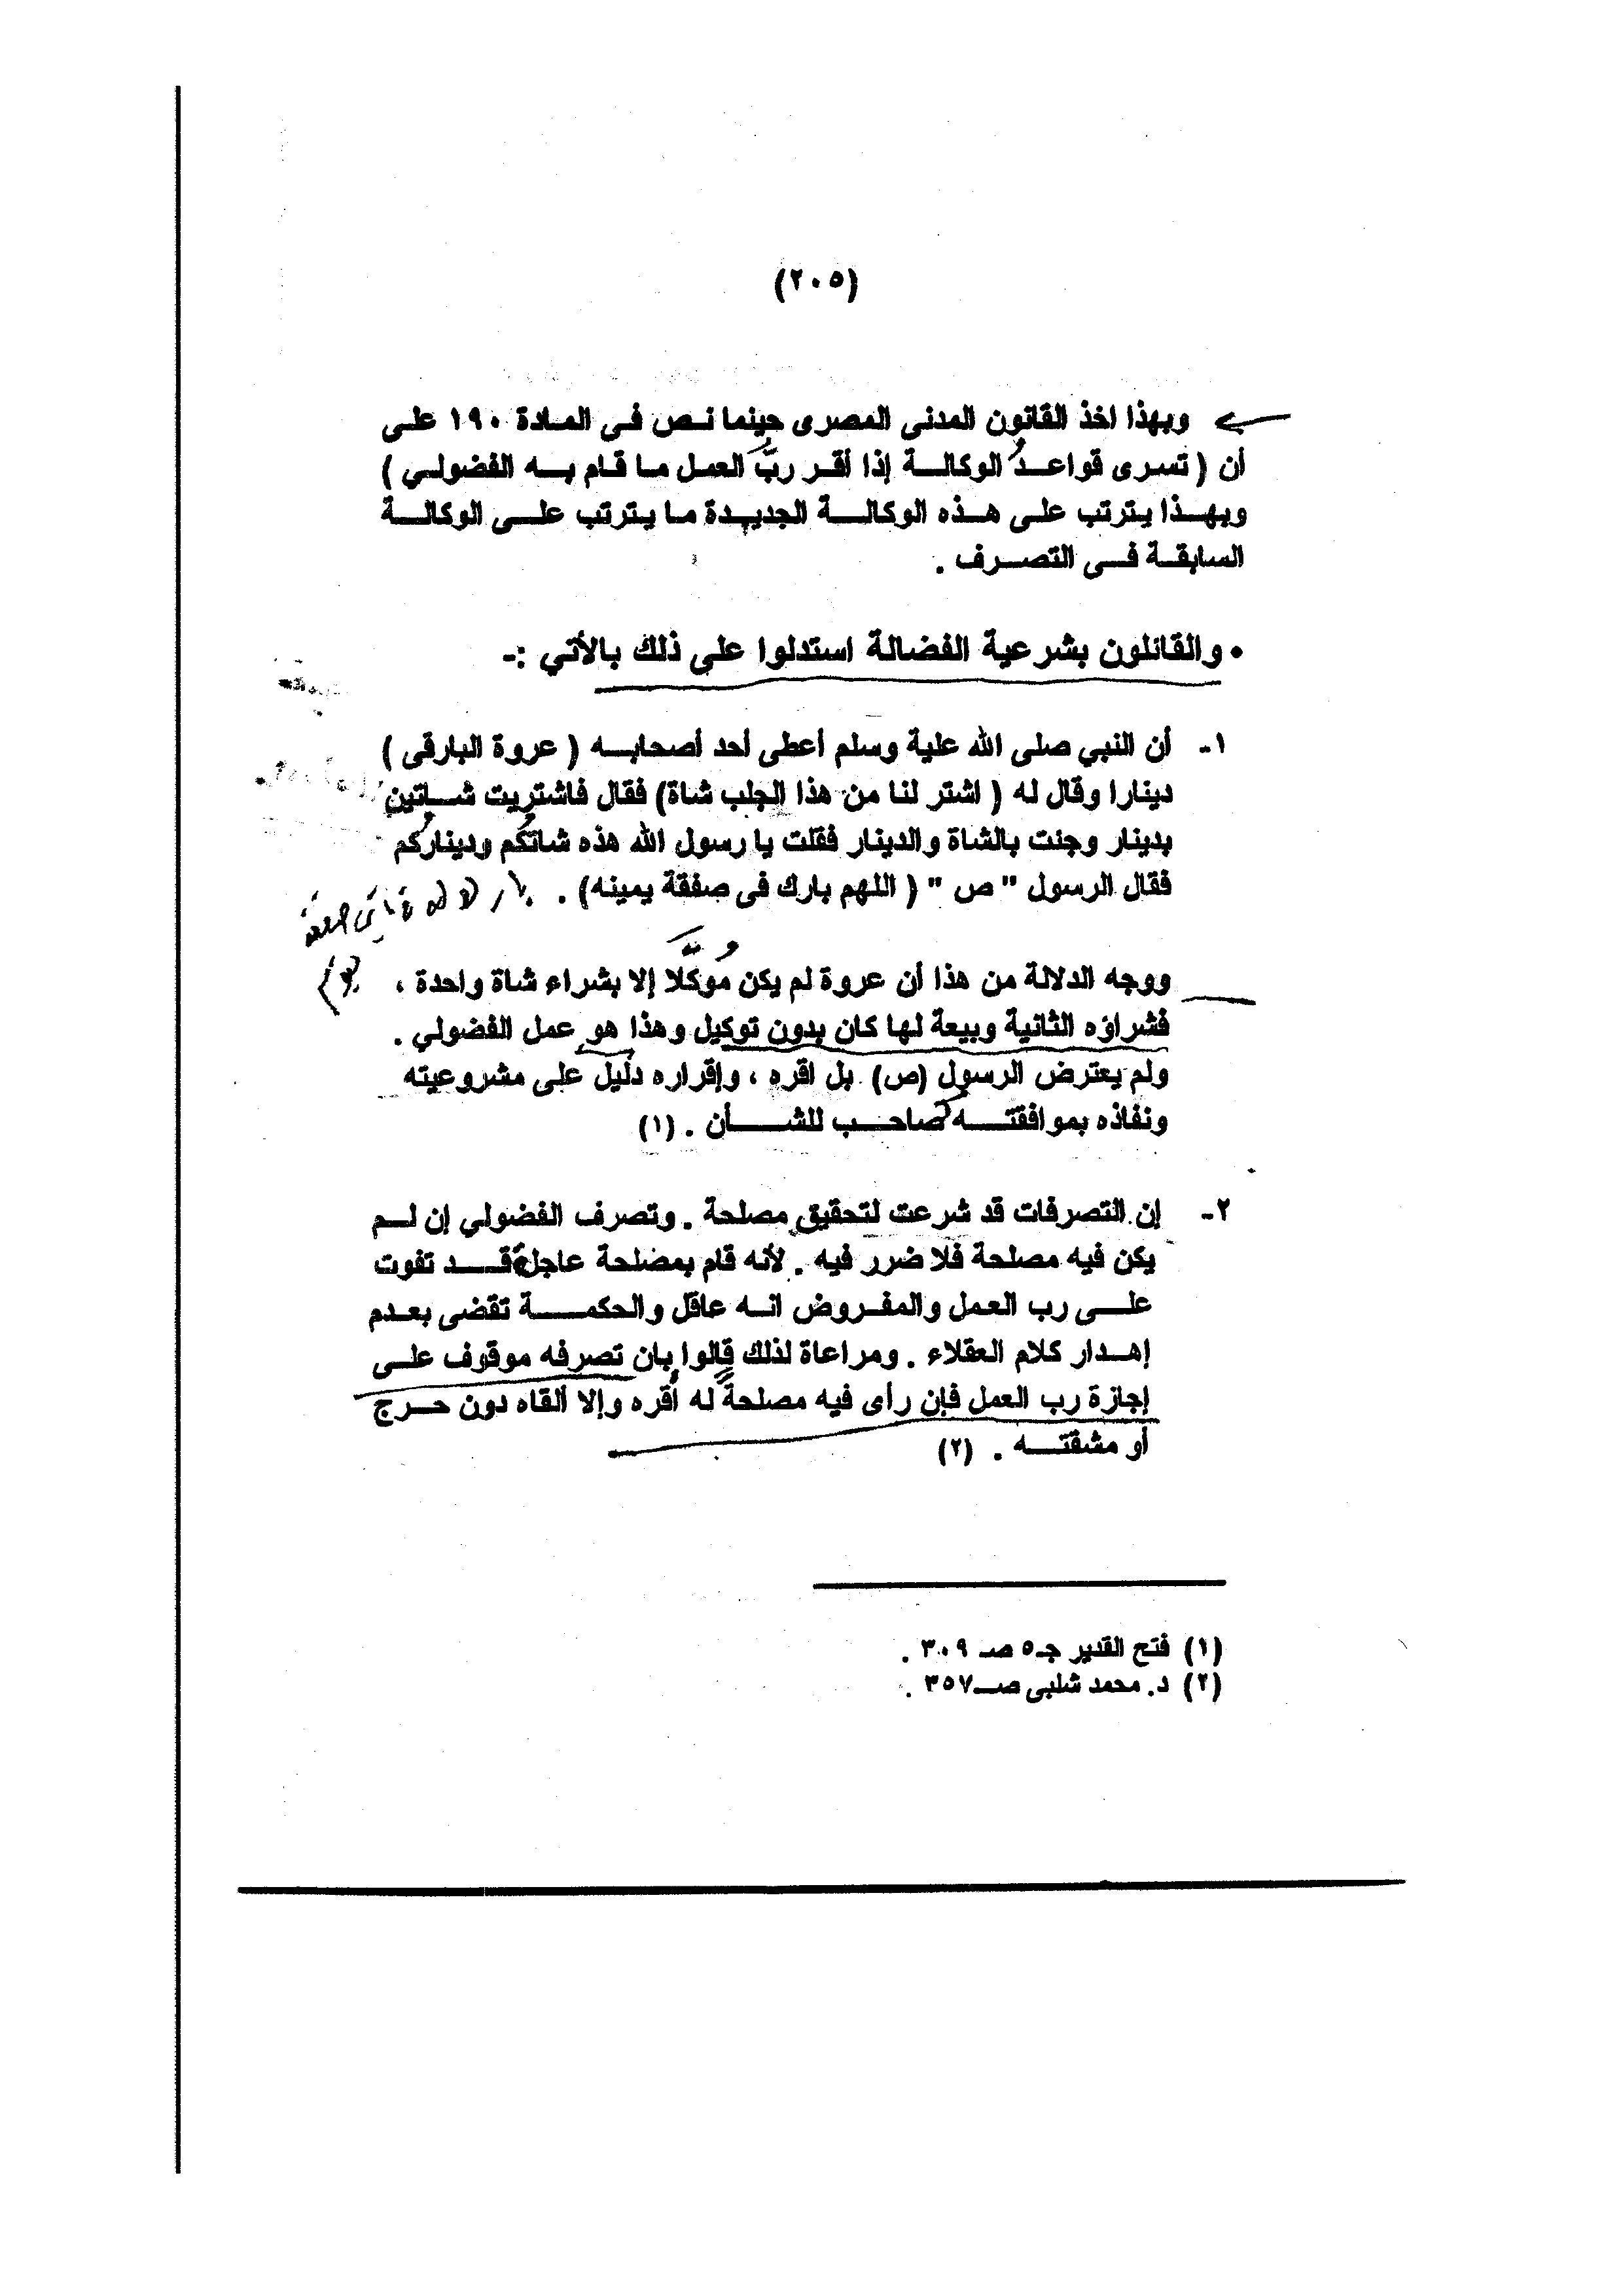 (٢٠٥)
وبهذا اخذ القانون المدنى المصرى حينما نص فى المادة ١٩٠ على
أن ( تسرى قواعدُ الوكالة إذا أقر ربُّ العمل ما قام به الفضولي )
وبهذا يترتب على هذه الوكالة الجديدة ما يترتب على الوكالة
السابقة فى التصرف .
• والقائلون بشرعية الفضالة استدلوا على ذلك بالأتي :-
١- أن النبي صلى الله علية وسلم أعطى أحد أصحابه ( عروة البارقى )
دينارا وقال له ( اشتر لنا من هذا الجلب شاة) فقال فاشتريت شاتين
بدينار وجئت بالشاة والدينار فقلت يا رسول الله هذه شاتكُم ودينارُكم
فقال الرسول " ص " ( اللهم بارك فى صفقة يمينه) .
ووجه الدلالة من هذا أن عروة لم يكن مُوكَّلا إلا بشراء شاة واحدة ،
فشراؤه الثانية وبيعة لها كان بدون توكيل وهذا هو عمل الفضولي .
ولم يعترض الرسول (ص) بل اقره ، وإقراره دليل على مشروعيته
ونفاذه بموافقته صاحب للشأن . (١)
٢- إن التصرفات قد شرعت لتحقيق مصلحة . وتصرف الفضولي إن لم
يكن فيه مصلحة فلا ضرر فيه . لأنه قام بمصلحة عاجلة قد تفوت
على رب العمل والمفروض انه عاقل والحكمة تقضى بعدم
إهدار كلام العقلاء . ومراعاة لذلك قالوا بان تصرفه موقوف على
إجازة رب العمل فإن رأى فيه مصلحةً له أقره وإلا ألقاه دون حرج
أو مشقته . (٢)
(١) فتح القدير جـ٥ صـ ٣٠٩ .
(٢) د. محمد شلبى صـ٣٥٧ .